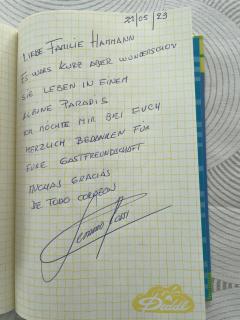 22/05/23
LIEBE FAMILIE HAMMANN
ES WARS KURZ ABER WUNDERSCHÖN
SIE LEBEN IN EINEM
KLEINE PARADIS
ICH MÖCHTE MIR BEI EUCH
HERZLICH BEDANKEN FÜR
EURE GASTFREUNDSCHAFT
MUCHAS GRACIAS
DE TODO CORAZON
Duddl